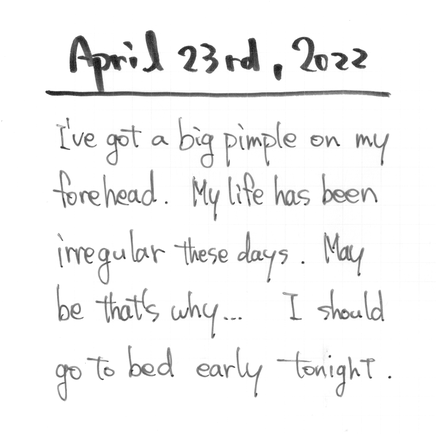 April 23rd, 2022
I've got a big pimple on my
forehead. My life has been
irregular these days. May
be that's why... I should
go to bed early tonight.